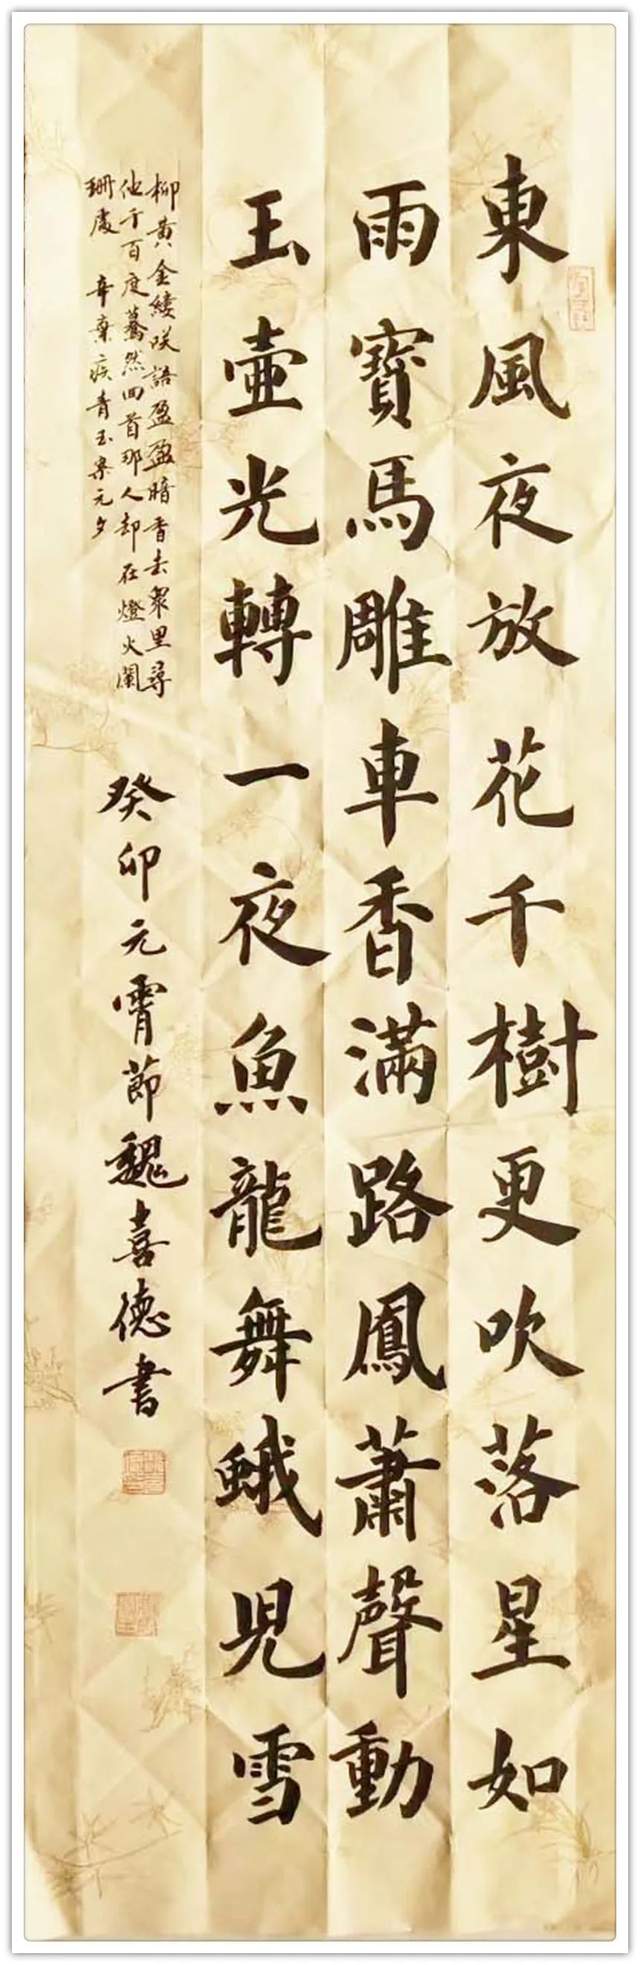 東風夜放花千樹更吹落星如
雨寶馬雕車香滿路鳳蕭聲動
玉壺光轉一夜魚龍舞蛾兒雪
柳黃金縷咲語盈盈暗香去眾里尋
他千百度驀然回首那人却在燈火闌
珊處 辛棄疾青玉案元夕
癸卯元宵節魏喜德書